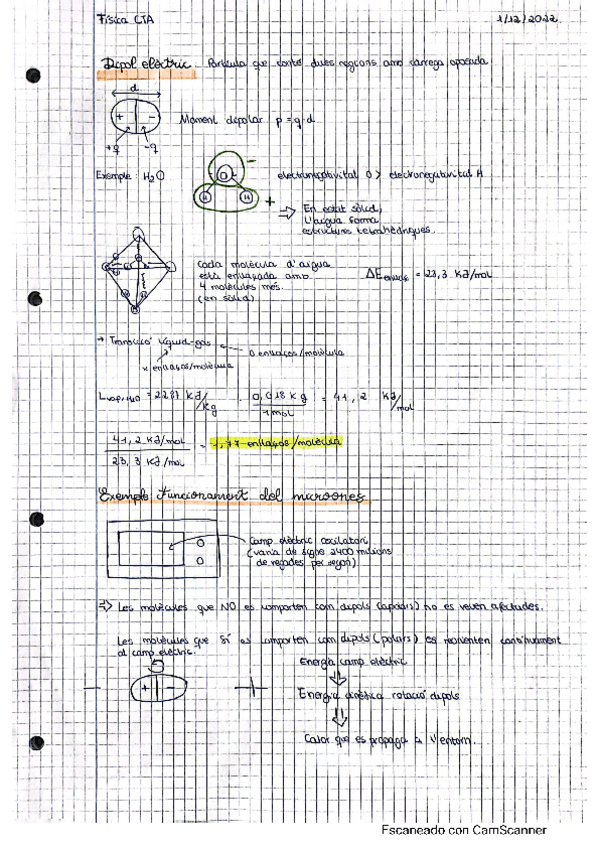 Física CTA
1/12/2022
Dipol elèctric. Partícula que conté dues regions amb càrrega oposada
d
+ -
Moment dipolar p = q·d
+q -q
Exemple: H₂O
O
H H
-
+
electronegativitat O > electronegativitat H
⇒ En estat sòlid,
l'aigua forma
estructures tetrahèdriques.
Cada molècula d'aigua
està enllaçada amb
4 molècules més.
(en sòlid)
ΔE enllaç = 23,3 kJ/mol
→ Transició líquid-gas
0 enllaços/molècula
x enllaços/molècula
= 2287 kJ/kg · 0,018 kg / 1 mol = 41,2 kJ/mol
41,2 kJ/mol / 23,3 kJ/mol = 1,77 enllaços/molècula
Exemple: Funcionament del microones
Camp elèctric oscil·latori
(varia de signe 2400 milions
de vegades per segon)
⇒ Les molècules que NO es comporten com dipols (apolars) no es veuen afectades.
Les molècules que SÍ es comporten com dipols (polars) es reorienten contínuament
al camp elèctric.
Energia camp elèctric
+ -
Energia cinètica rotació dipols
Calor que es propaga a l'entorn.
Escaneado con CamScanner